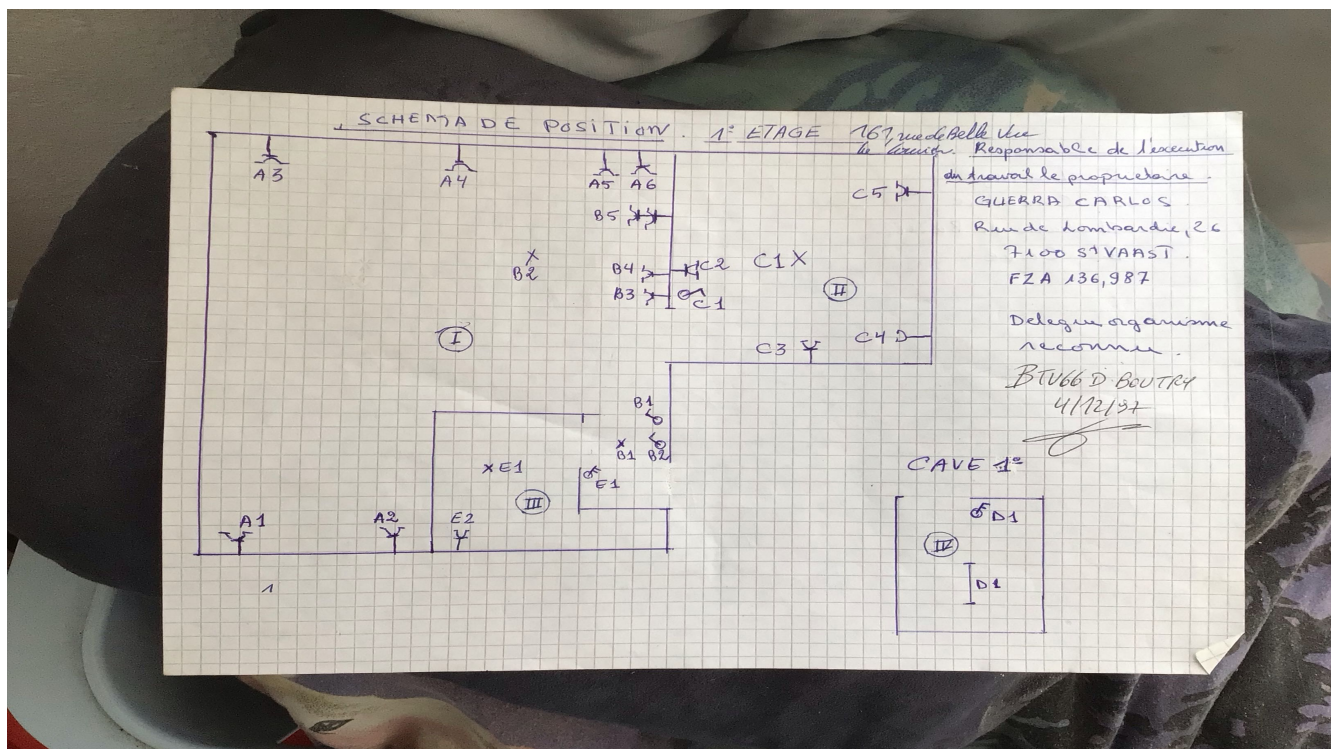 SCHEMA DE POSITION. 1° ETAGE 161, rue de Belle Vue
Responsable de l'execution
du travail le proprietaire.
GUERRA CARLOS
Rue de Lombardie, 26
7100 St VAAST.
FZA 136,987
Delegue organisme
reconnu.
BTV66 D BOUTRY
4/12/97
A3
A4
A5 A6
C5
B5
B2
B4 C2
C1
B3 C1
II
I
C3
C4
B1
B1 B2
E1
E1
III
A1
A2
E2
1
CAVE 1°
D1
IV
D1